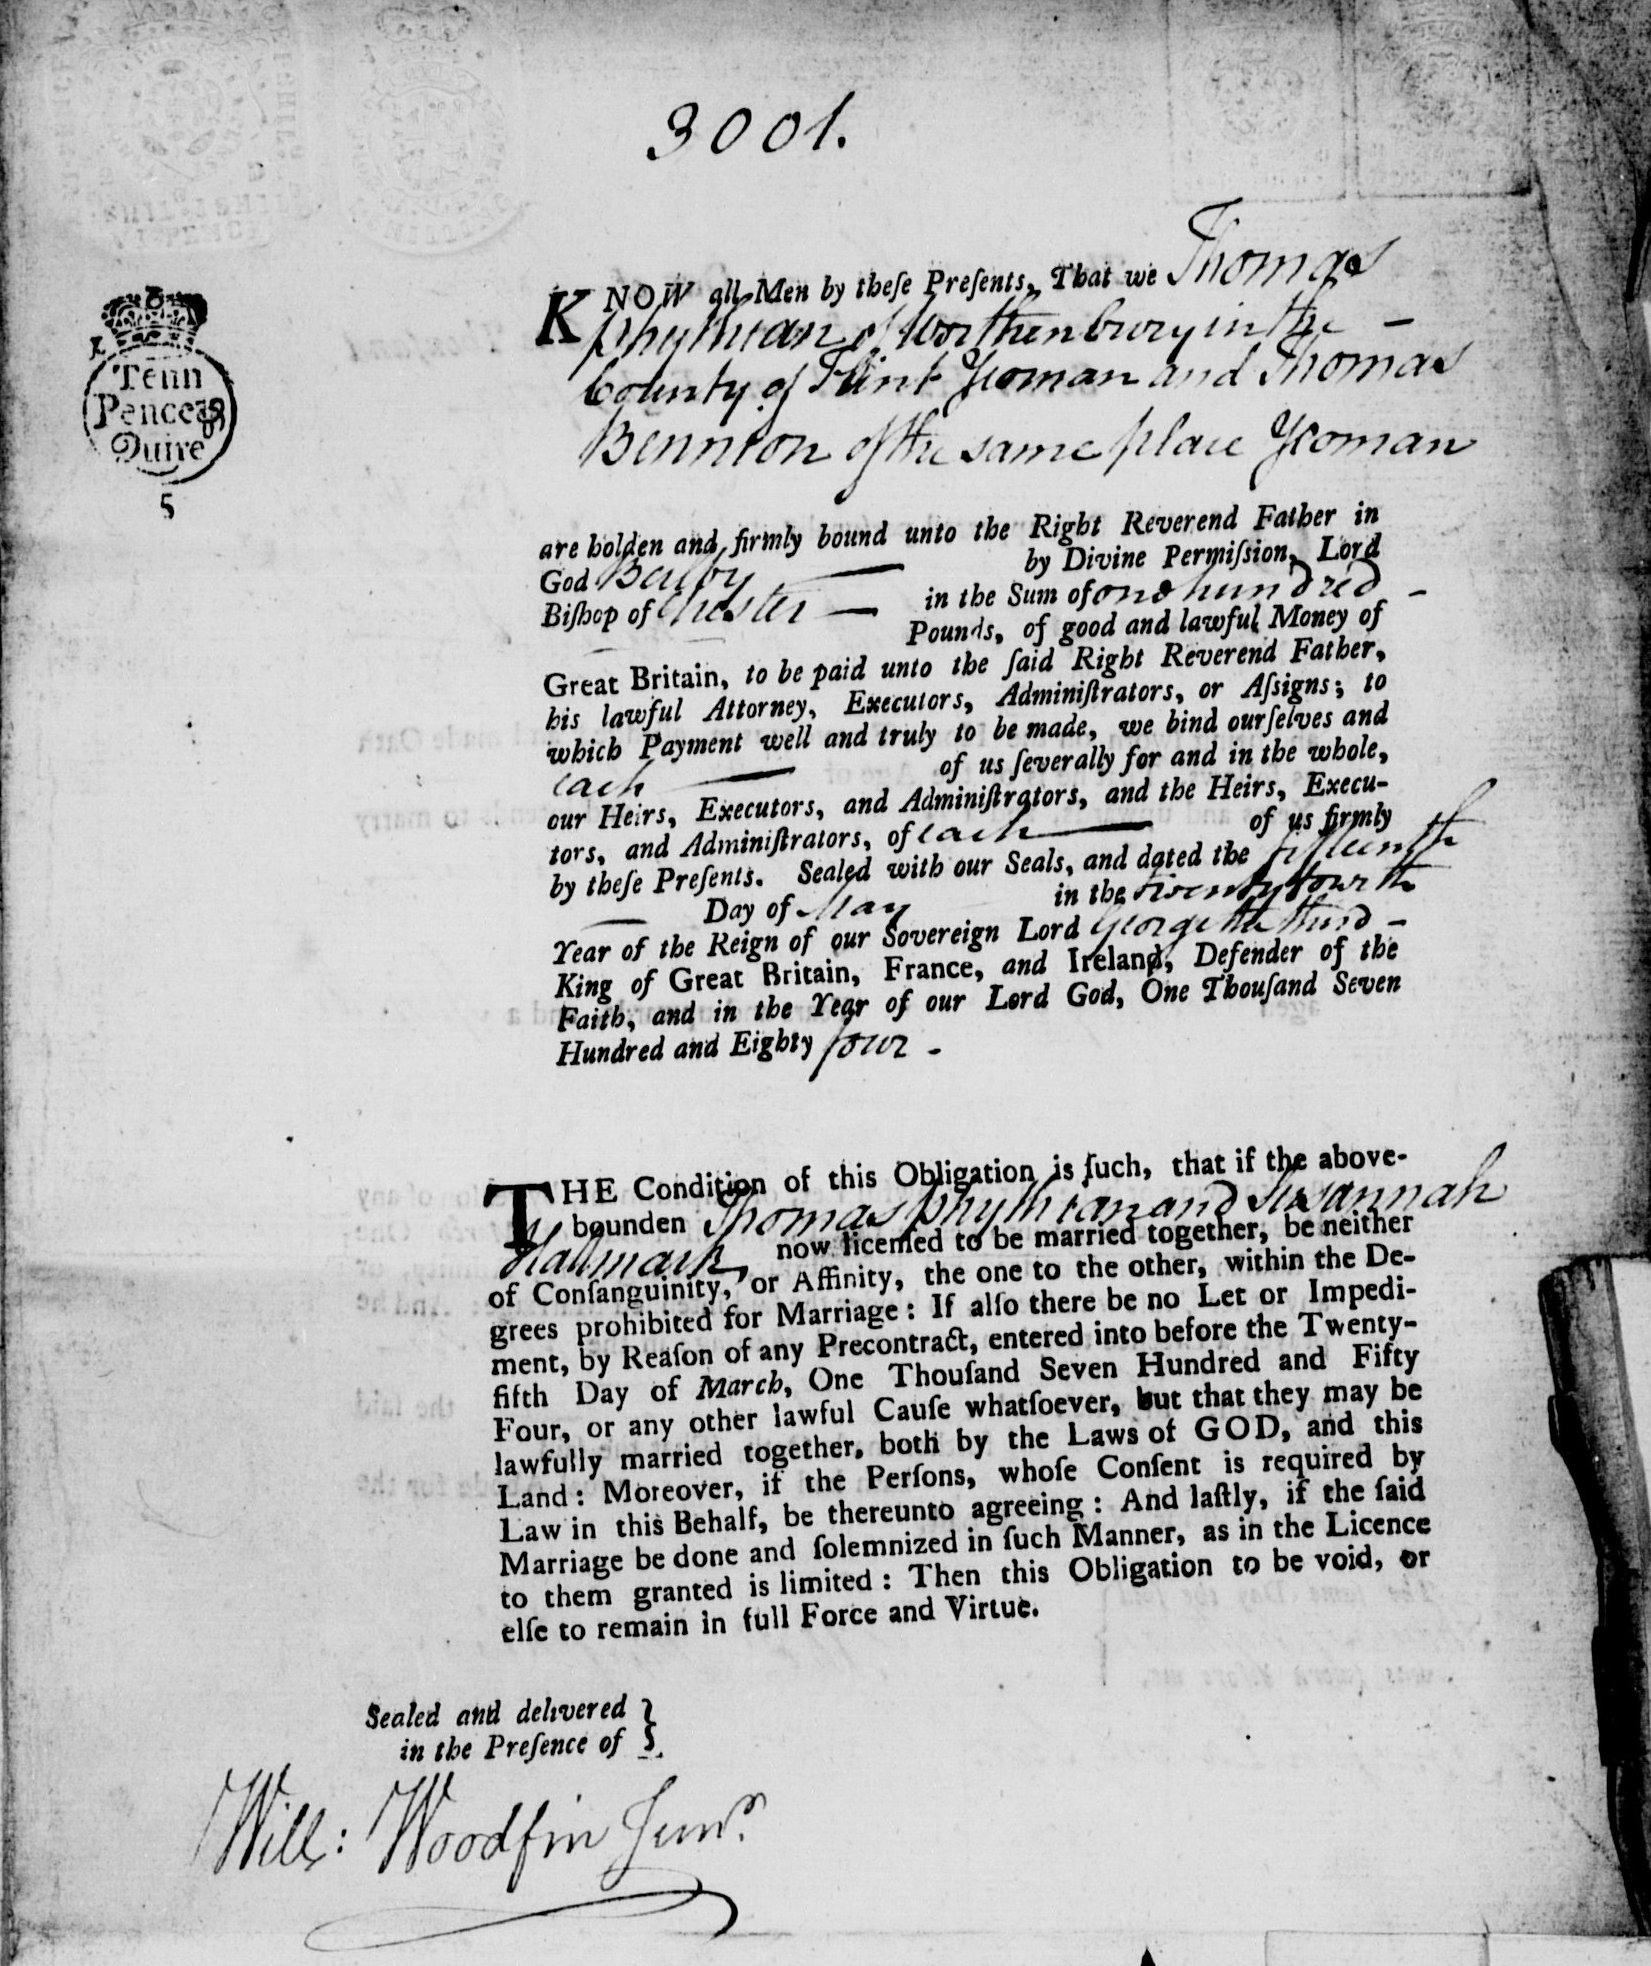 3001.
Tenn
Pence pr
Quire
5
KNOW all Men by theſe Preſents, That we Thomas
Phythian of Worthenbury in the -
County of Flint Yeoman and Thomas
Bennion of the same place Yeoman
are holden and firmly bound unto the Right Reverend Father in
God Beilby — by Divine Permiſſion, Lord
Biſhop of Chester — in the Sum of one hundred -
Pounds, of good and lawful Money of
Great Britain, to be paid unto the ſaid Right Reverend Father,
his lawful Attorney, Executors, Adminiſtrators, or Aſſigns; to
which Payment well and truly to be made, we bind ourſelves and
each — of us ſeverally for and in the whole,
our Heirs, Executors, and Adminiſtrators, and the Heirs, Execu-
tors, and Adminiſtrators, of each — of us firmly
by theſe Preſents. Sealed with our Seals, and dated the fifteenth
— Day of May in the twenty fourth
Year of the Reign of our Sovereign Lord George the third -
King of Great Britain, France, and Ireland, Defender of the
Faith, and in the Year of our Lord God, One Thouſand Seven
Hundred and Eighty four -
THE Condition of this Obligation is ſuch, that if the above-
bounden Thomas Phythian and Susannah
Hallmark now licenſed to be married together, be neither
of Conſanguinity, or Affinity, the one to the other, within the De-
grees prohibited for Marriage: If alſo there be no Let or Impedi-
ment, by Reaſon of any Precontract, entered into before the Twenty-
fifth Day of March, One Thouſand Seven Hundred and Fifty
Four, or any other lawful Cauſe whatſoever, but that they may be
lawfully married together, both by the Laws of GOD, and this
Land: Moreover, if the Perſons, whoſe Conſent is required by
Law in this Behalf, be thereunto agreeing: And laſtly, if the ſaid
Marriage be done and ſolemnized in ſuch Manner, as in the Licence
to them granted is limited: Then this Obligation to be void, or
elſe to remain in full Force and Virtue.
Sealed and delivered
in the Preſence of
Will: Woodfin Junr.